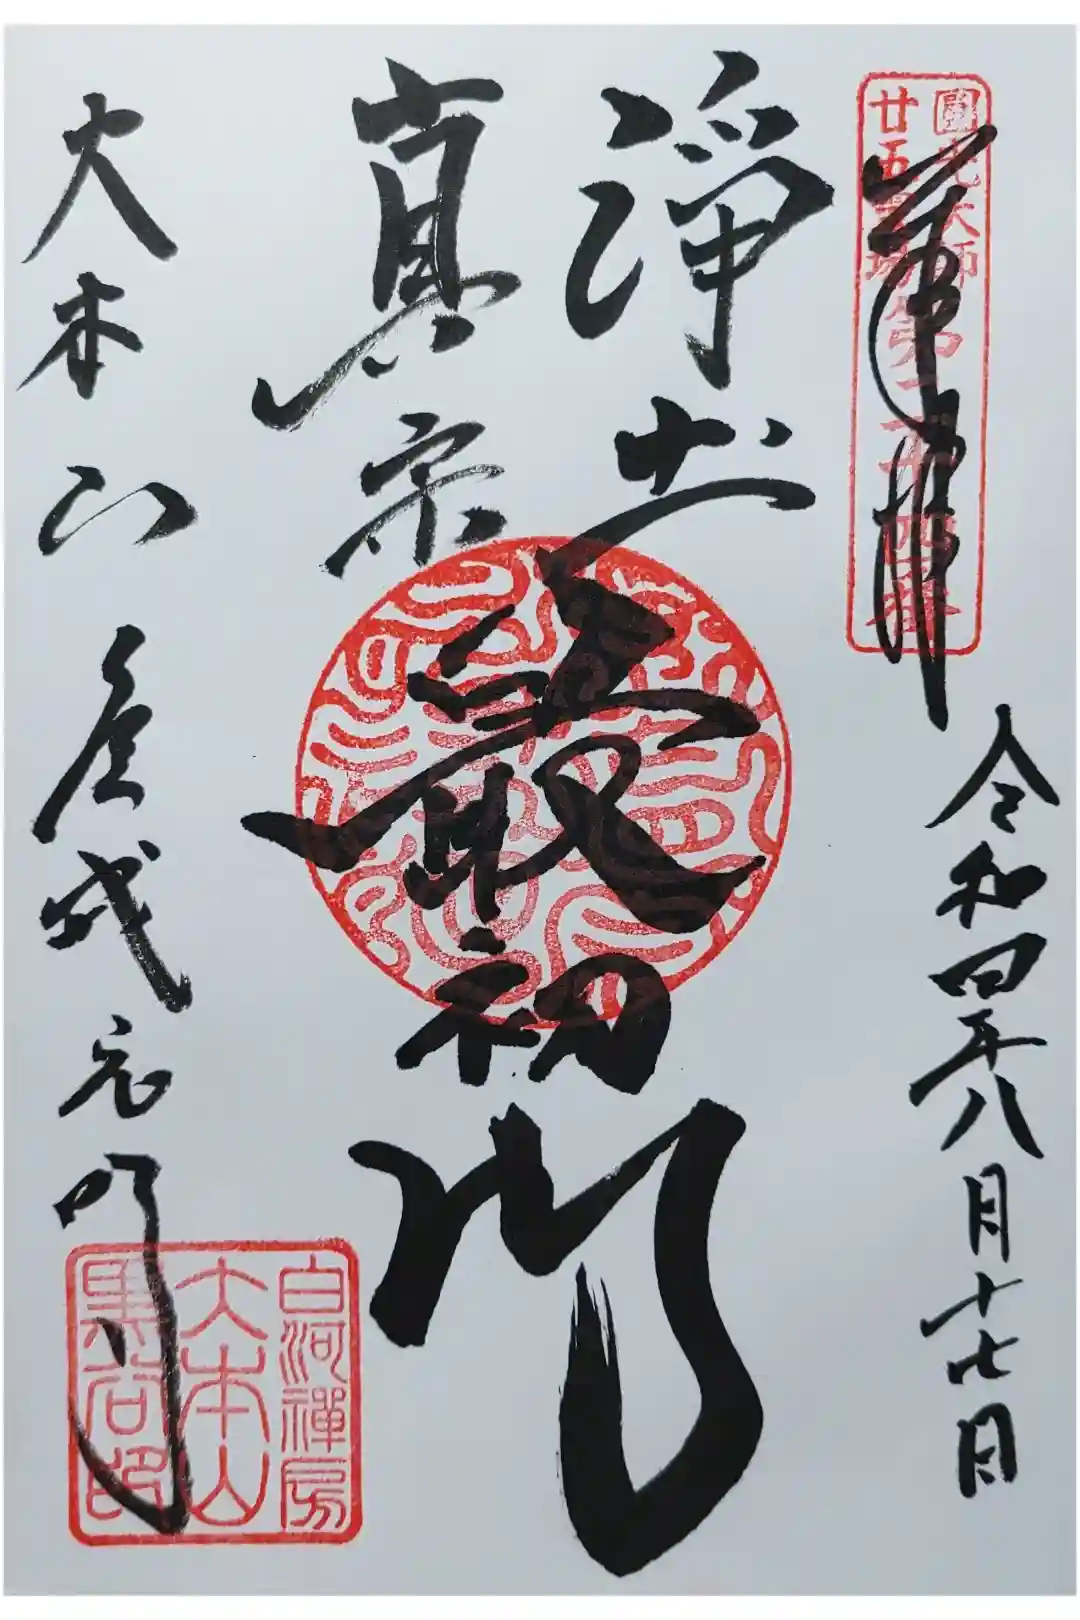 圓光大師
廿五霊場第二十四番
奉拝
令和四年八月十七日
浄土
真宗
最初門
大本山
金戒光明
白河禅房
大本山
黒谷印